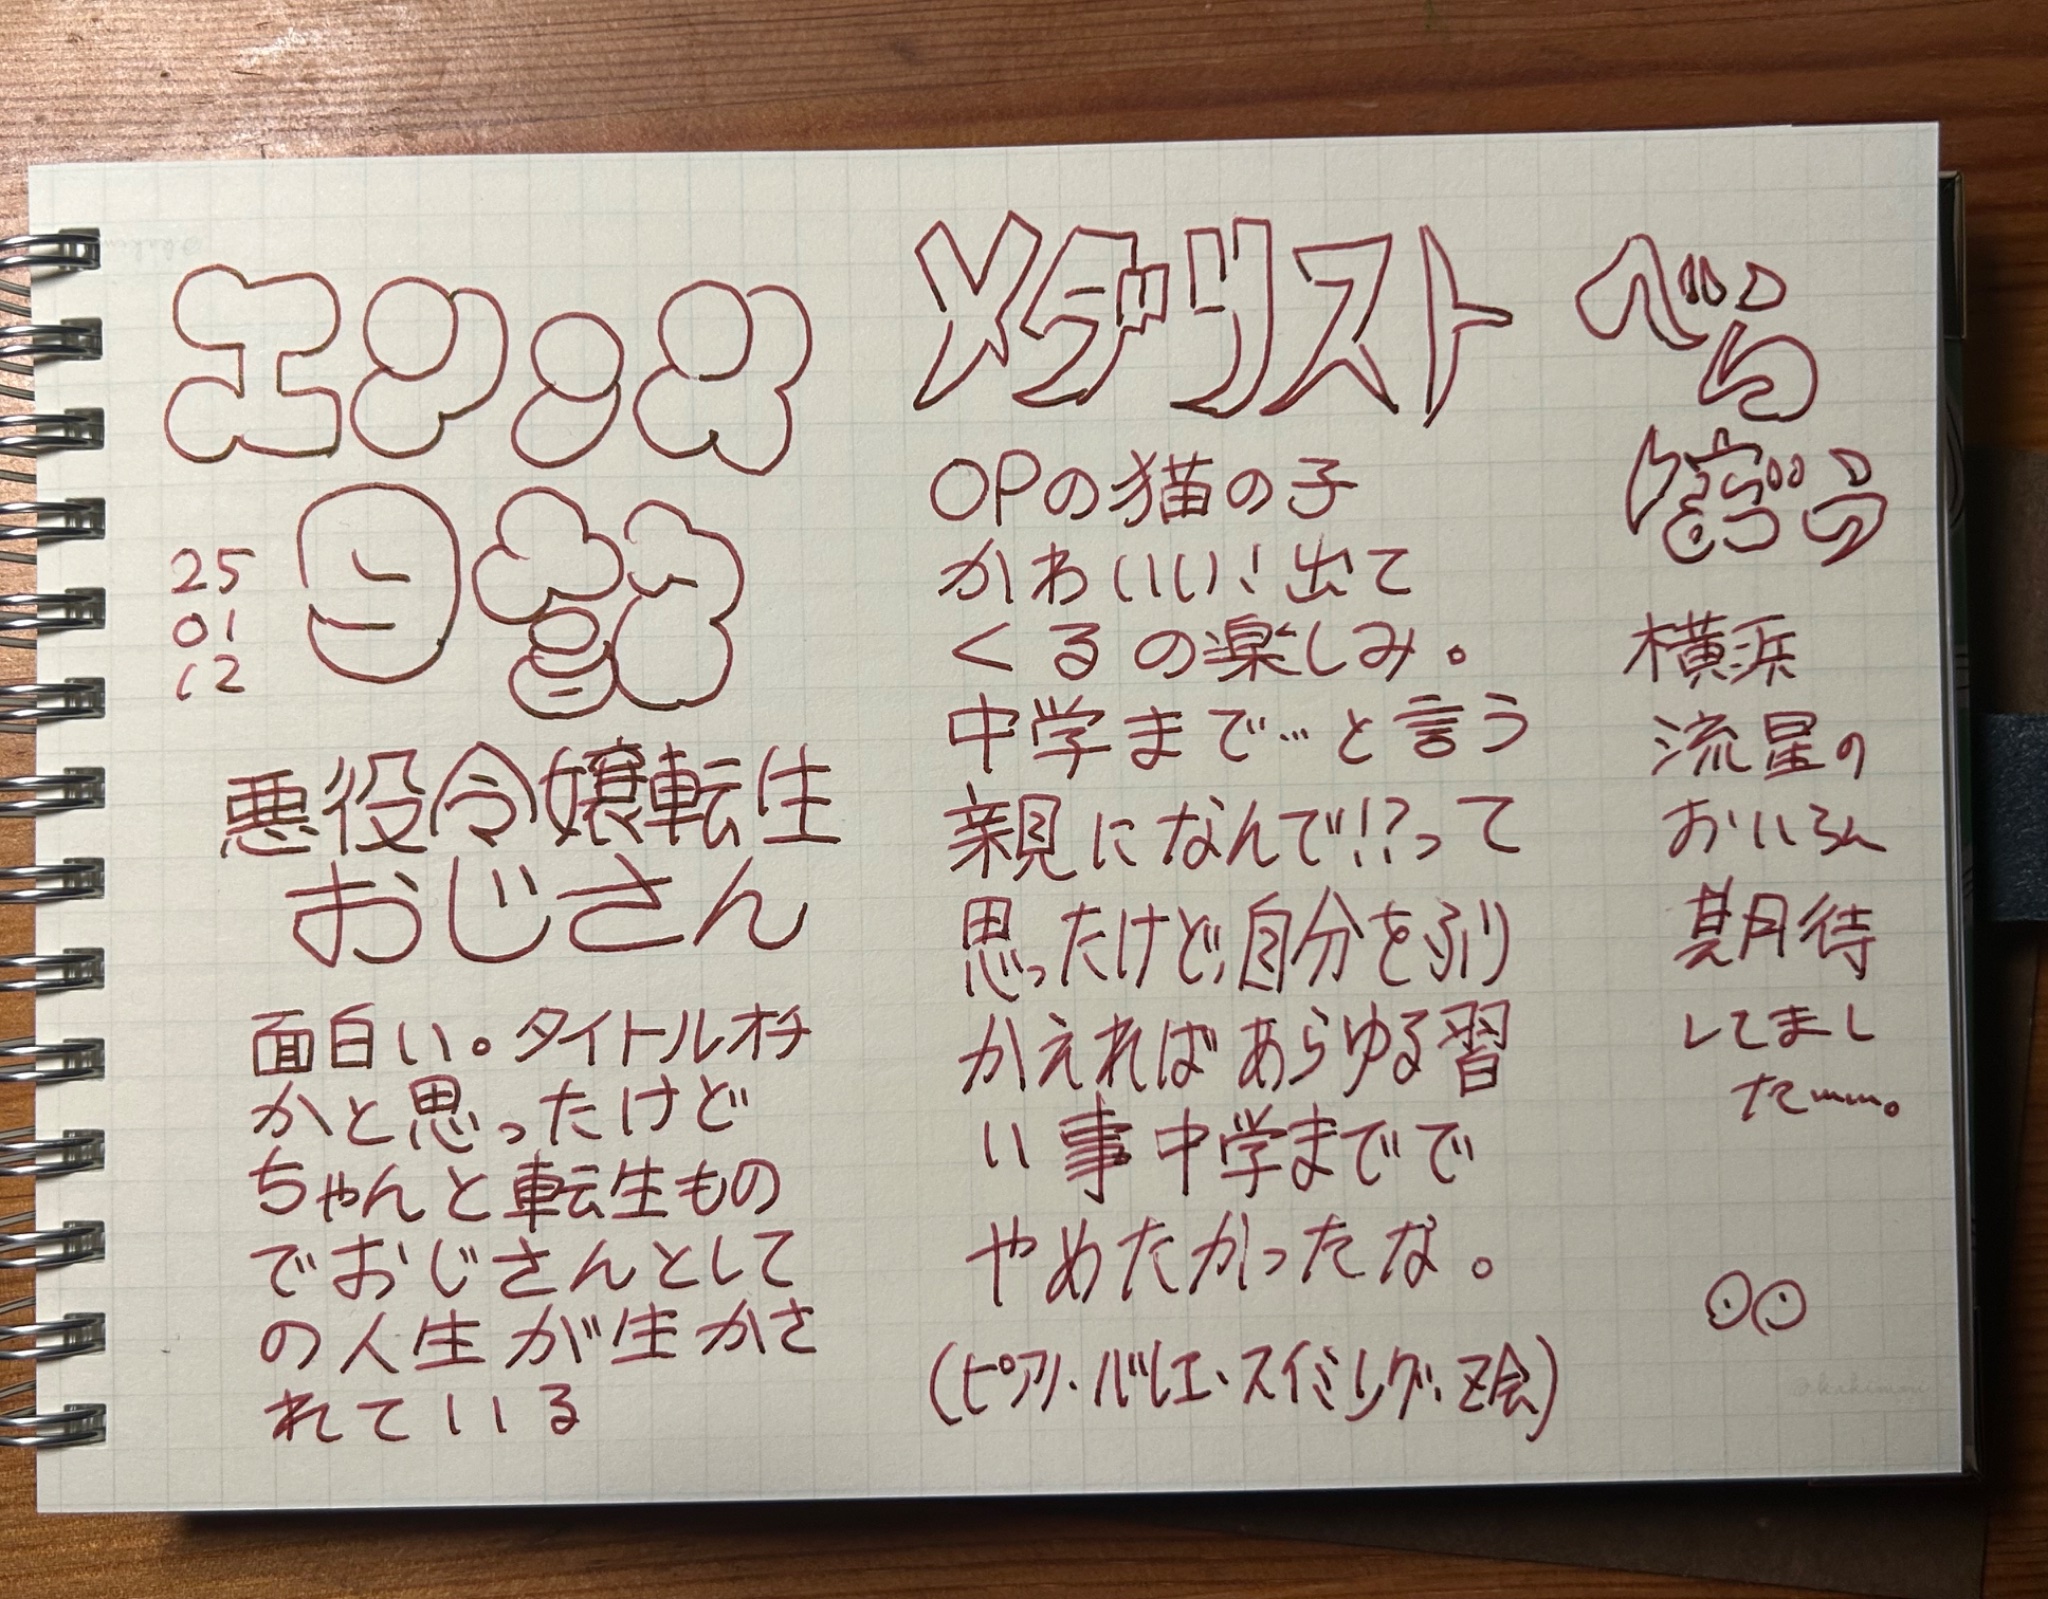 25
01
12
悪役令嬢転生
おじさん
面白い。タイトルオチ
かと思ったけど
ちゃんと転生もの
でおじさんとして
の人生が生かさ
れている
メダリスト
OPの猫の子
かわいい！出て
くるの楽しみ。
中学まで…と言う
親になんで!?って
思ったけど、自分をふり
かえればあらゆる習
い事中学までで
やめたかったな。
(ピアノ・バレエ・スイミング・Z会)
べら
ぼう
横浜
流星の
おいらん
期待
してまし
た〜〜。